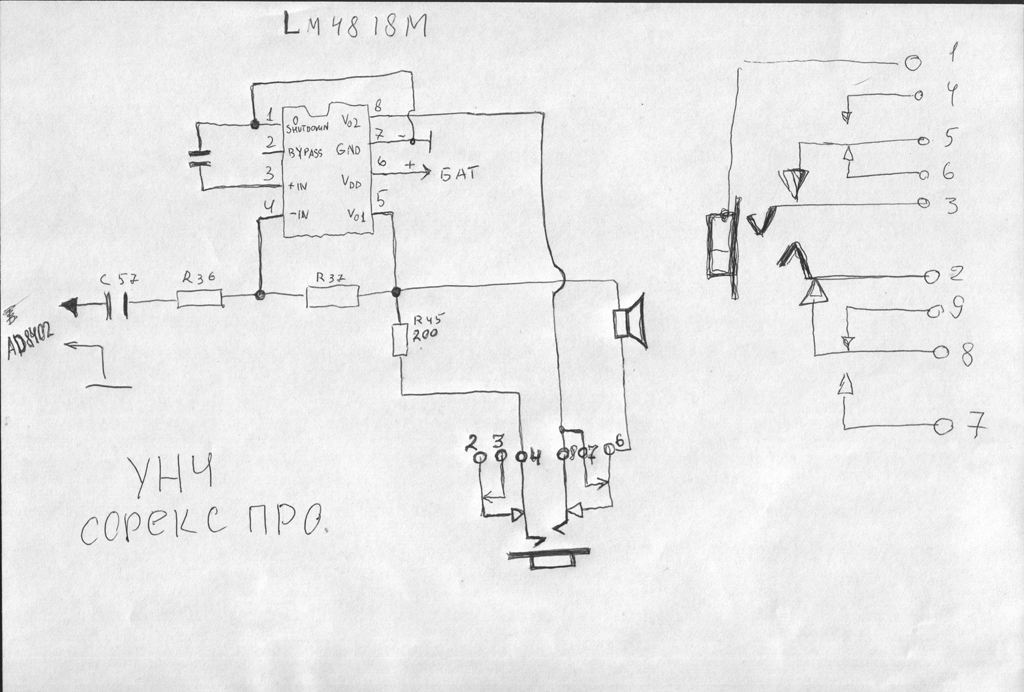 LM4818M
1
SHUTDOWN
2
BYPASS
3
+IN
4
-IN
8
VO2
7
GND
6
VDD
5
VO1
-
+
БАТ
C 57
R36
R37
R45
200
AD8402
2 3 4 8 7 6
УНЧ
СОРЕКС ПРО.
1
4
5
6
3
2
9
8
7